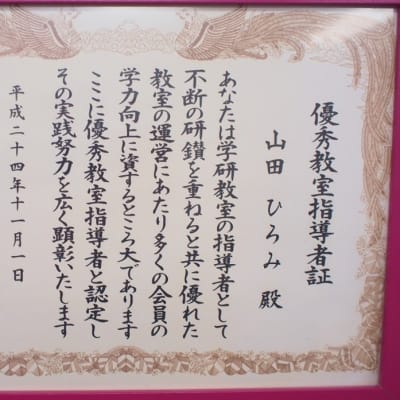 優秀教室指導者証
山田 ひろみ 殿
あなたは学研教室の指導者として
不断の研鑽を重ねると共に優れた
教室の運営にあたり多くの会員の
学力向上に資するところ大であります
ここに優秀教室指導者と認定し
その実践努力を広く顕彰いたします
平成二十四年十一月一日